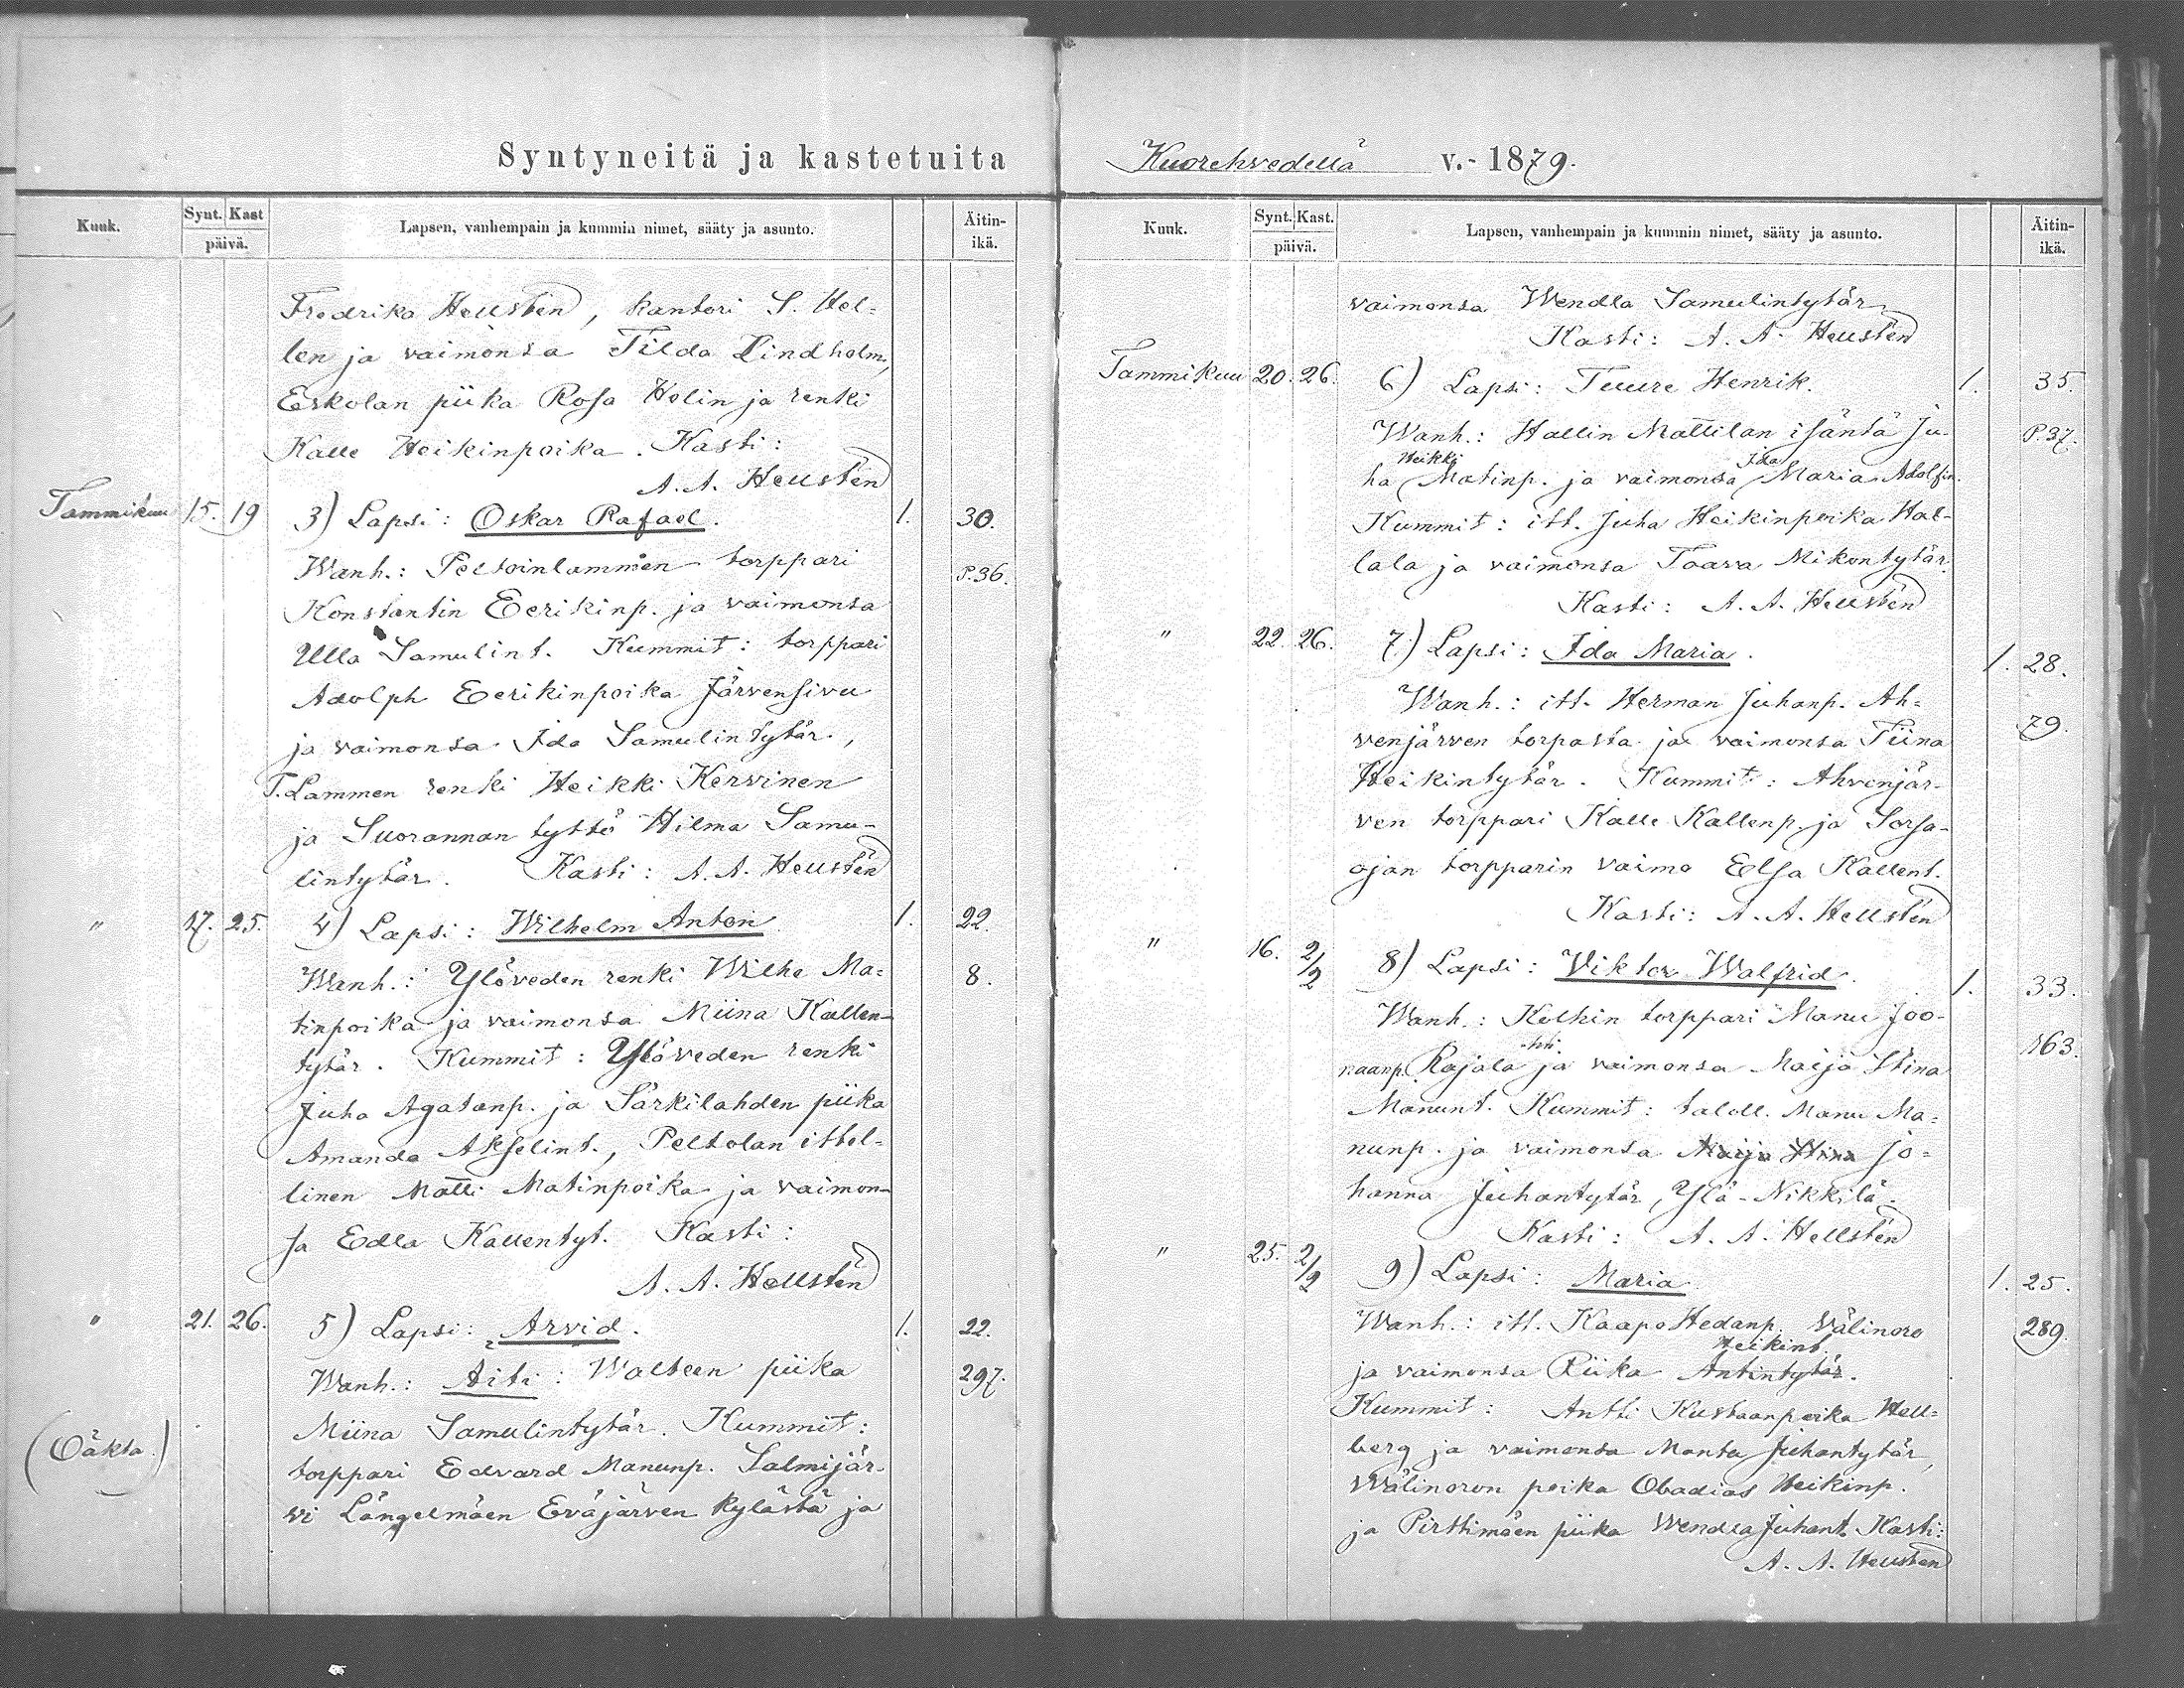 Syntyneitä ja kastetuita
Kuuk.
Synt. Kast
päivä.
Lapsen, vanhempain ja kummin nimet, sääty ja asunto.
Äitin-
ikä.
Fredrika Hellstén, kantori S. Hel-
len ja vaimonsa Tilda Lindholm,
Eskolan piika Rosa Helin ja renki
Kalle Heikinpoika. Kasti:
A. A. Hellstén
Tammikuu 15. 19 3) Lapsi: Oskar Rafael. 1. 30.
Wanh.: Peltoinlammin torppari P. 36.
Konstantin Eerikinp. ja vaimonsa
Ulla Samulint. Kummit: torppari
Adolph Eerikinpoika Järvensivu
ja vaimonsa Ida Samulintytär,
P. Lammen renki Heikki Kervinen
ja Suorannan tyttö Hilma Samu-
lintytär. Kasti: A. A. Hellstén
" 17. 25. 4) Lapsi: Wilhelm Anton 1. 22.
Wanh.: Ylöveden renki Wilhe Ma= 8.
tinpoika ja vaimonsa Miina Kallen-
tytär. Kummit: Ylöveden renki
Juha Agatanp. ja Särkilahden piika
Amanda Akselint., Peltolan ittel-
linen Matti Matinpoika ja vaimon-
sa Edla Kallentyt. Kasti:
A. A. Hellstén
" 21. 26. 5) Lapsi: Arvid. 1. 22.
Wanh.: Äiti: Walteen piika 297.
Miina Samulintytär. Kummit:
(Oäkta.)
torppari Edvard Manunp. Salmijär-
vi Längelmäen Eväjärven kylästä ja
Kuorehvedellä v. 1879.
Kuuk.
Synt. Kast.
päivä.
Lapsen, vanhempain ja kummin nimet, sääty ja asunto.
Äitin-
ikä.
vaimonsa Wendla Samulintytär.
Kasti: A. A. Hellstén
Tammikuu 20. 26. 6) Lapsi: Tuure Henrik. 1. 35.
Wanh.: Hallin Mattilan isäntä Ju- P. 37.
Heikki Ida
ha Matinp. ja vaimonsa Maria Adolfin.
Kummit: itt. Juha Heikinpoika Hal-
lala ja vaimonsa Taava Mikontytär.
Kasti: A. A. Hellstén
" 22. 26. 7) Lapsi: Ida Maria. 1. 28.
Wanh.: itt. Herman Juhanp. Ah-
venjärven torpasta ja vaimonsa Tiina 79.
Heikintytär. Kummit: Ahvenjär-
ven torppari Kalle Kallenp. ja Sorsa-
ojan torpparin vaimo Elsa Kallent.
Kasti: A. A. Hellstén
" 16. 2/2 8) Lapsi: Viktor Walfrid. 1. 33.
Wanh.: Kolhin torppari Manu Joo-
naanp. Rajala ja vaimonsa Maija Stina 163.
Manunt. Kummit: taloll. Manu Ma=
nunp. ja vaimonsa Maija Stina Jo=
hanna Juhantytär, Ylä-Nikkilä.
Kasti: A. A. Hellstén
" 25. 2/2 9) Lapsi: Maria 1. 25.
Wanh.: itt. Kaapo Hedanp. Välinoro 289.
Heikint.
ja vaimonsa Riika Antintytär.
Kummit: Antti Kustaanpoika Hell=
berg ja vaimonsa Manta Juhantytär,
Wälinoron poika Obadias Heikinp.
ja Pirttimäen piika Wendla Juhant. Kasti:
A. A. Hellstén